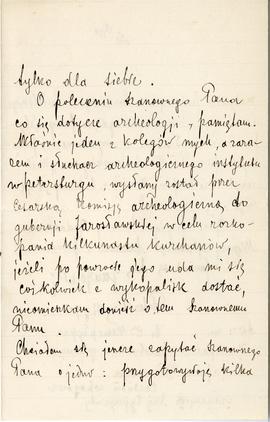 tylko dla siebie.
O poleceniu szanownego Pana
co się dotycze archeologji, pamiętam.
Właśnie jeden z kolegów mych, a zara-
zem i słuchacz archeologicznego instytutu
w petersburgu, wysłany został przez
Cesarską Komisję archeologiczną do
gubernji Jarosławskiej w celu rozko-
pania kilkunastu kurchanów,
jeżeli po powrocie jego uda mi się
cośkolwiek z wykopalisk dostać,
nieomieszkam donieść o tem szanownemu
Panu.
Chciałem się jeszcze zapytać szanownego
Pana o jedno: przygotowywując kilka